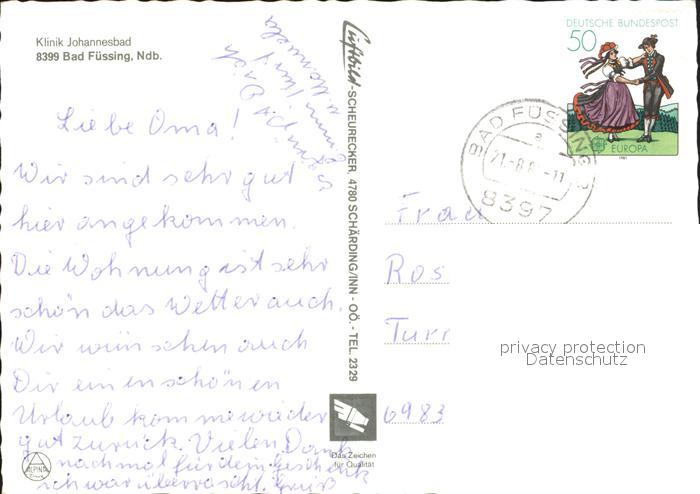 Klinik Johannesbad
8399 Bad Füssing, Ndb.
Liebe Oma!
Wir sind sehr gut
hier angekommen.
Die Wohnung ist sehr
schön das Wetter auch.
Wir wünschen auch
Dir einen schönen
Urlaub komme wieder
gut zurück. Vielen Dank
nochmal für dein Geschenk
ich war überrascht. Gruß
Luftbild-SCHEURECKER, 4780 SCHÄRDING/INN - OÖ. - TEL. 2329
Das Zeichen
für Qualität
ALPINA
DEUTSCHE BUNDESPOST
50
EUROPA
1981
BAD FÜSSING
a
21.-8.8 -11
8397
Frau
Ros
Turr
6983
privacy protection
Datenschutz